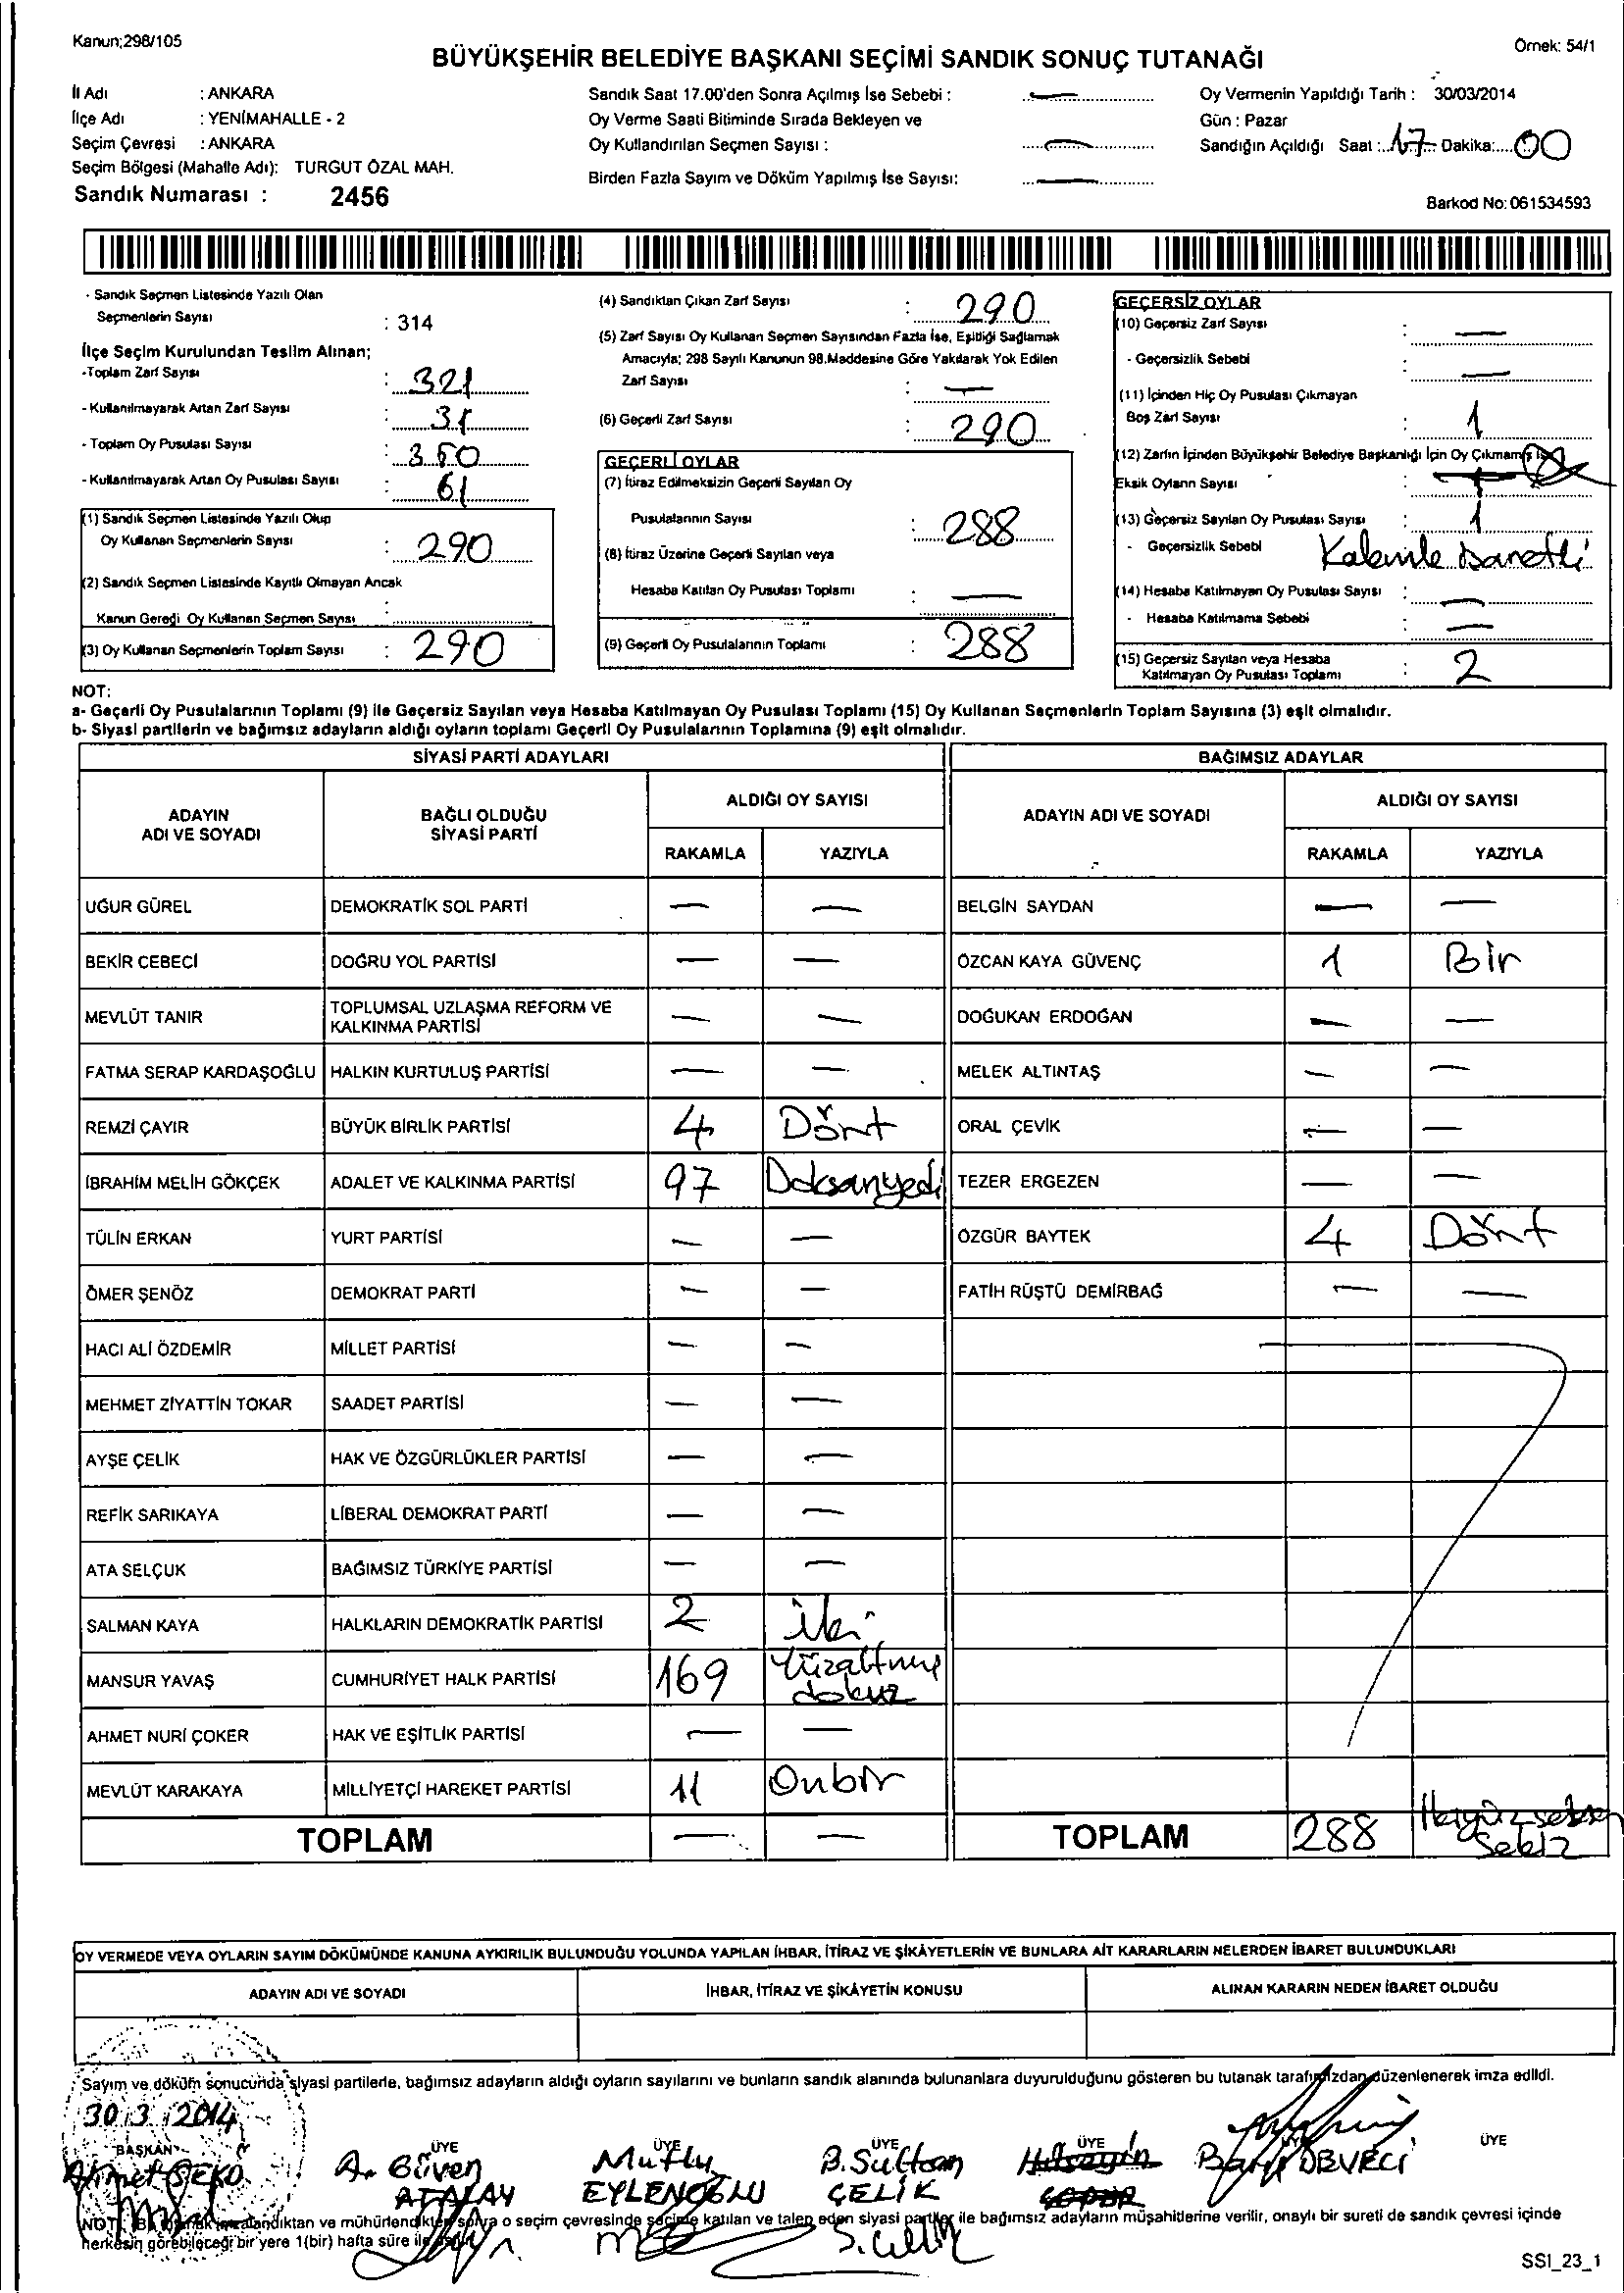 Kanun;298/105
Örnek: 54/1
BÜYÜKŞEHİR BELEDİYE BAŞKANI SEÇİMİ SANDIK SONUÇ TUTANAĞI
İl Adı : ANKARA
İlçe Adı : YENİMAHALLE - 2
Seçim Çevresi : ANKARA
Seçim Bölgesi (Mahalle Adı): TURGUT ÖZAL MAH.
Sandık Numarası : 2456
Sandık Saat 17.00'den Sonra Açılmış İse Sebebi : —
Oy Verme Saati Bitiminde Sırada Bekleyen ve
Oy Kullandırılan Seçmen Sayısı : —
Birden Fazla Sayım ve Döküm Yapılmış İse Sayısı: —
Oy Vermenin Yapıldığı Tarih : 30/03/2014
Gün : Pazar
Sandığın Açıldığı Saat : 17 Dakika: 00
Barkod No: 061534593
- Sandık Seçmen Listesinde Yazılı Olan
Seçmenlerin Sayısı : 314
İlçe Seçim Kurulundan Teslim Alınan;
-Toplam Zarf Sayısı : 321
- Kullanılmayarak Artan Zarf Sayısı : 31
- Toplam Oy Pusulası Sayısı : 350
- Kullanılmayarak Artan Oy Pusulası Sayısı : 61
(1) Sandık Seçmen Listesinde Yazılı Olup
Oy Kullanan Seçmenlerin Sayısı : 290
(2) Sandık Seçmen Listesinde Kayıtlı Olmayan Ancak
Kanun Gereği Oy Kullanan Seçmen Sayısı :
(3) Oy Kullanan Seçmenlerin Toplam Sayısı : 290
(4) Sandıktan Çıkan Zarf Sayısı : 290
(5) Zarf Sayısı Oy Kullanan Seçmen Sayısından Fazla İse, Eşitliği Sağlamak
Amacıyla; 298 Sayılı Kanunun 98.Maddesine Göre Yakılarak Yok Edilen
Zarf Sayısı : —
(6) Geçerli Zarf Sayısı : 290
GEÇERLİ OYLAR
(7) İtiraz Edilmeksizin Geçerli Sayılan Oy
Pusulalarının Sayısı : 288
(8) İtiraz Üzerine Geçerli Sayılan veya
Hesaba Katılan Oy Pusulası Toplamı : —
(9) Geçerli Oy Pusulalarının Toplamı : 288
GEÇERSİZ OYLAR
(10) Geçersiz Zarf Sayısı : —
- Geçersizlik Sebebi : —
(11) İçinden Hiç Oy Pusulası Çıkmayan
Boş Zarf Sayısı : 1
(12) Zarfın İçinden Büyükşehir Belediye Başkanlığı İçin Oy Çıkmamış İse
Eksik Oyların Sayısı :
(13) Geçersiz Sayılan Oy Pusulası Sayısı : 1
- Geçersizlik Sebebi Kalemle İşaretli
(14) Hesaba Katılmayan Oy Pusulası Sayısı : —
- Hesaba Katılmama Sebebi : —
(15) Geçersiz Sayılan veya Hesaba
Katılmayan Oy Pusulası Toplamı : 2
NOT:
a- Geçerli Oy Pusulalarının Toplamı (9) ile Geçersiz Sayılan veya Hesaba Katılmayan Oy Pusulası Toplamı (15) Oy Kullanan Seçmenlerin Toplam Sayısına (3) eşit olmalıdır.
b- Siyasi partilerin ve bağımsız adayların aldığı oyların toplamı Geçerli Oy Pusulalarının Toplamına (9) eşit olmalıdır.
SİYASİ PARTİ ADAYLARI
ADAYIN ADI VE SOYADI
BAĞLI OLDUĞU SİYASİ PARTİ
ALDIĞI OY SAYISI
RAKAMLA YAZIYLA
UĞUR GÜREL DEMOKRATİK SOL PARTİ — —
BEKİR CEBECİ DOĞRU YOL PARTİSİ — —
MEVLÜT TANIR TOPLUMSAL UZLAŞMA REFORM VE
KALKINMA PARTİSİ — —
FATMA SERAP KARDAŞOĞLU HALKIN KURTULUŞ PARTİSİ — —
REMZİ ÇAYIR BÜYÜK BİRLİK PARTİSİ 4 Dört
İBRAHİM MELİH GÖKÇEK ADALET VE KALKINMA PARTİSİ 97 Doksanyedi
TÜLİN ERKAN YURT PARTİSİ — —
ÖMER ŞENÖZ DEMOKRAT PARTİ — —
HACI ALİ ÖZDEMİR MİLLET PARTİSİ — —
MEHMET ZİYATTİN TOKAR SAADET PARTİSİ — —
AYŞE ÇELİK HAK VE ÖZGÜRLÜKLER PARTİSİ — —
REFİK SARIKAYA LİBERAL DEMOKRAT PARTİ — —
ATA SELÇUK BAĞIMSIZ TÜRKİYE PARTİSİ — —
SALMAN KAYA HALKLARIN DEMOKRATİK PARTİSİ 2 İki
MANSUR YAVAŞ CUMHURİYET HALK PARTİSİ 169 Yüzaltmış
dokuz
AHMET NURİ ÇOKER HAK VE EŞİTLİK PARTİSİ — —
MEVLÜT KARAKAYA MİLLİYETÇİ HAREKET PARTİSİ 11 Onbir
TOPLAM — —
BAĞIMSIZ ADAYLAR
ADAYIN ADI VE SOYADI
ALDIĞI OY SAYISI
RAKAMLA YAZIYLA
BELGİN SAYDAN — —
ÖZCAN KAYA GÜVENÇ 1 Bir
DOĞUKAN ERDOĞAN — —
MELEK ALTINTAŞ — —
ORAL ÇEVİK — —
TEZER ERGEZEN — —
ÖZGÜR BAYTEK 4 Dört
FATİH RÜŞTÜ DEMİRBAĞ — —
TOPLAM 288 İkiyüzseksen
Sekiz
OY VERMEDE VEYA OYLARIN SAYIM DÖKÜMÜNDE KANUNA AYKIRILIK BULUNDUĞU YOLUNDA YAPILAN İHBAR, İTİRAZ VE ŞİKÂYETLERİN VE BUNLARA AİT KARARLARIN NELERDEN İBARET BULUNDUKLARI
ADAYIN ADI VE SOYADI İHBAR, İTİRAZ VE ŞİKÂYETİN KONUSU ALINAN KARARIN NEDEN İBARET OLDUĞU
Sayım ve döküm sonucunda siyasi partilerle, bağımsız adayların aldığı oyların sayılarını ve bunların sandık alanında bulunanlara duyurulduğunu gösteren bu tutanak tarafımızdan düzenlenerek imza edildi.
30.3.2014
BAŞKAN ÜYE ÜYE ÜYE ÜYE ÜYE
Ahmet A. Güven Mutlu B. Sultan Hüseyin
ATALAY EYLENOĞLU ÇELİK DEVECİ
NOT: Bu tutanak imzalandıktan ve mühürlendikten sonra o seçim çevresinde seçime katılan ve talep eden siyasi partiler ile bağımsız adayların müşahitlerine verilir, onaylı bir sureti de sandık çevresi içinde
herkesin görebileceği bir yere 1(bir) hafta süre ile
S. Çelik
SSI_23_1